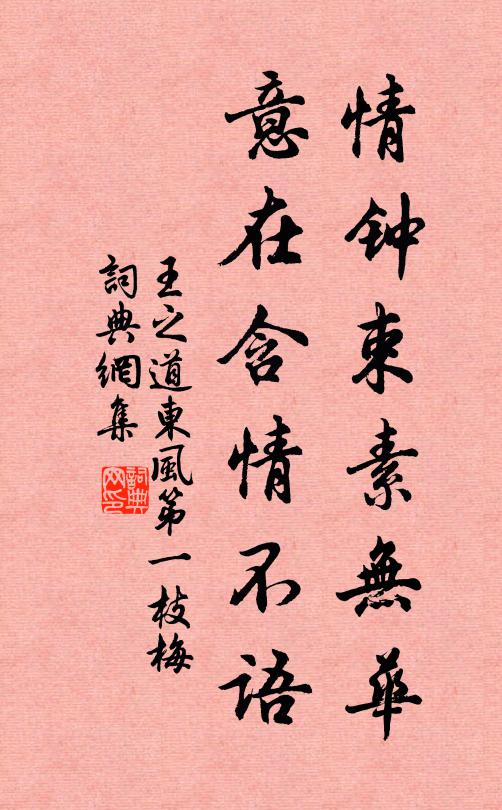 情钟束素無華
意在含情不语
王之道東風第一枝梅
詞典網集
詞典
网印